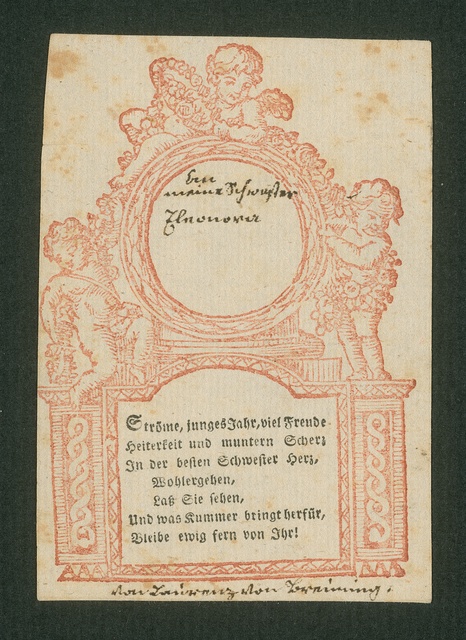 An
meine Schwester
Eleonora
Ströme, junges Jahr, viel Freude
Heiterkeit und muntern Scherz
In der besten Schwester Herz,
Wohlergehen,
Laß Sie sehen,
Und was Kummer bringt herfür,
Bleibe ewig fern von Ihr!
von Laurenz von Breuning.